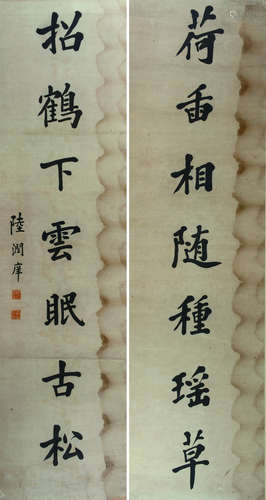 荷臿相随種瑶草
招鶴下雲眠古松
陸潤庠